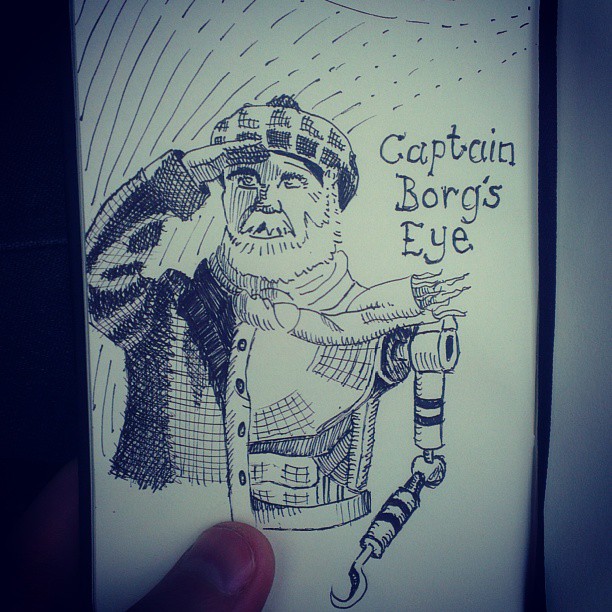 Captain
Borg's
Eye